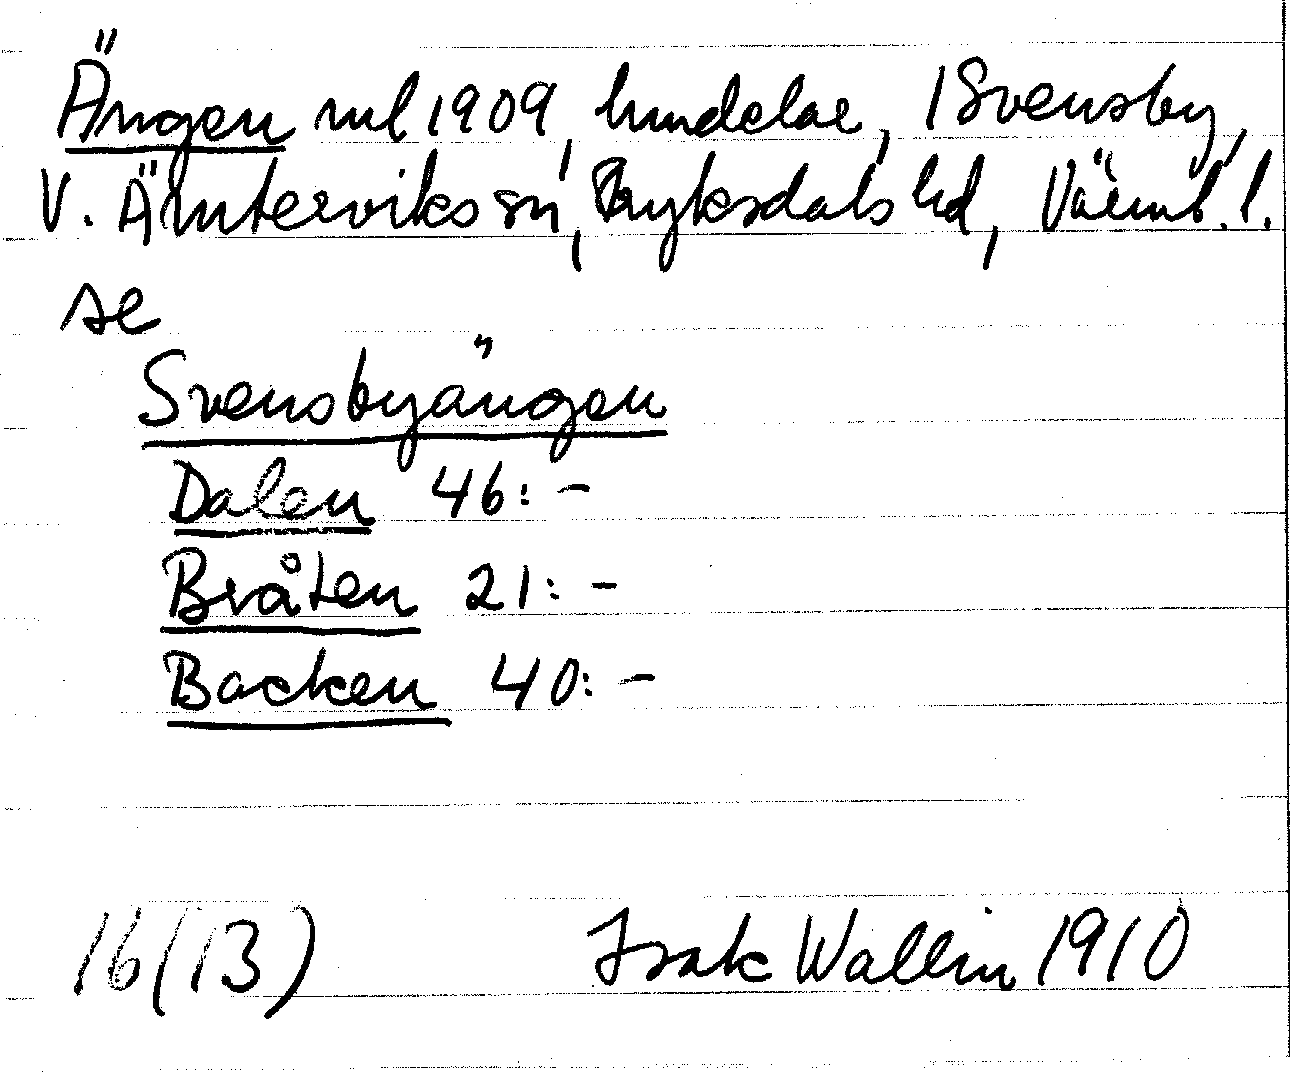 Ängen rul 1909, hmdelar, 1 Svensby,
V. Ämterviks sn, Fryksdals hd, Värml. l.
se
Svensbyängen
Dalen 46:-
Bråten 21:-
Backen 40:-
16(13) Isak Wallin 1910